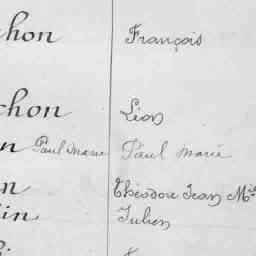 chon François
chon Léon
n Paul Marie Paul Marie
n Théodore Jean M^ie
in Julien